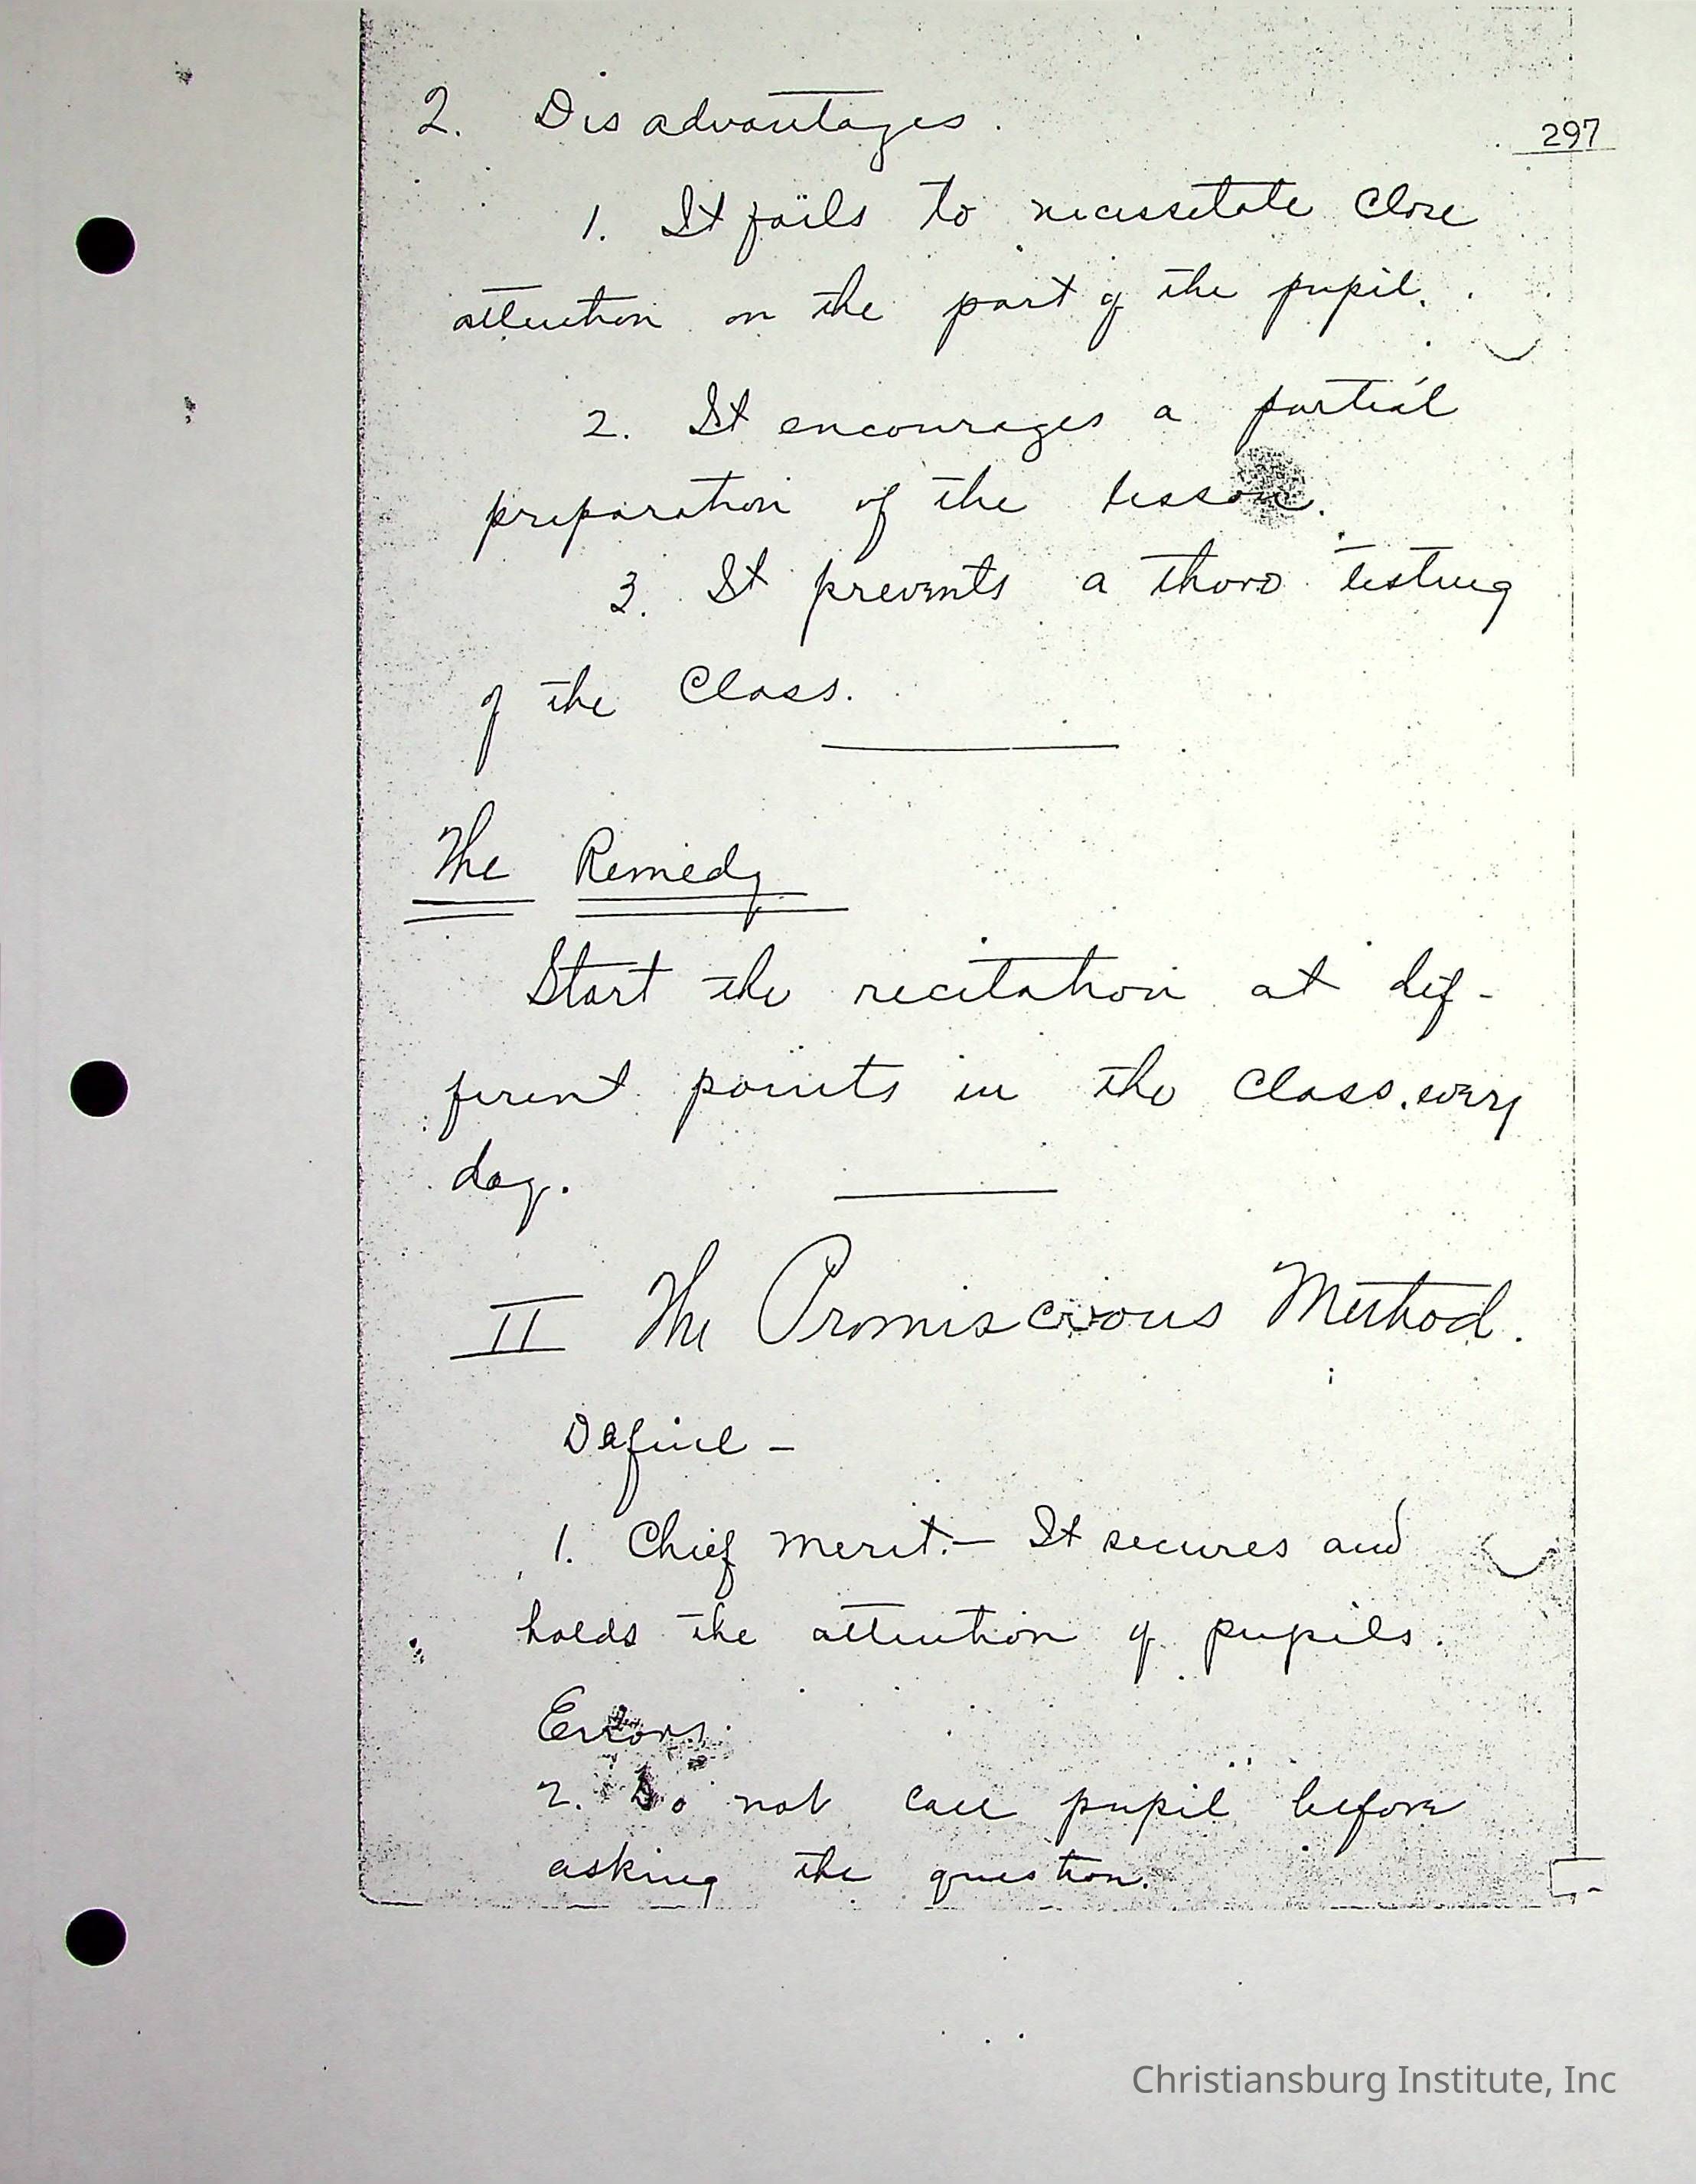 2. Disadvantages.
297
1. It fails to necessitate close
attention on the part of the pupil.
2. It encourages a partial
preparation of the lesson.
3. It prevents a thoro testing
of the Class.
The Remedy
Start the recitation at dif-
ferent points in the Class every
day.
II The Promiscuous Method.
Define -
1. Chief merit.— It secures and
holds the attention of pupils.
Errors.
2. Do not call pupil before
asking the question.
Christiansburg Institute, Inc